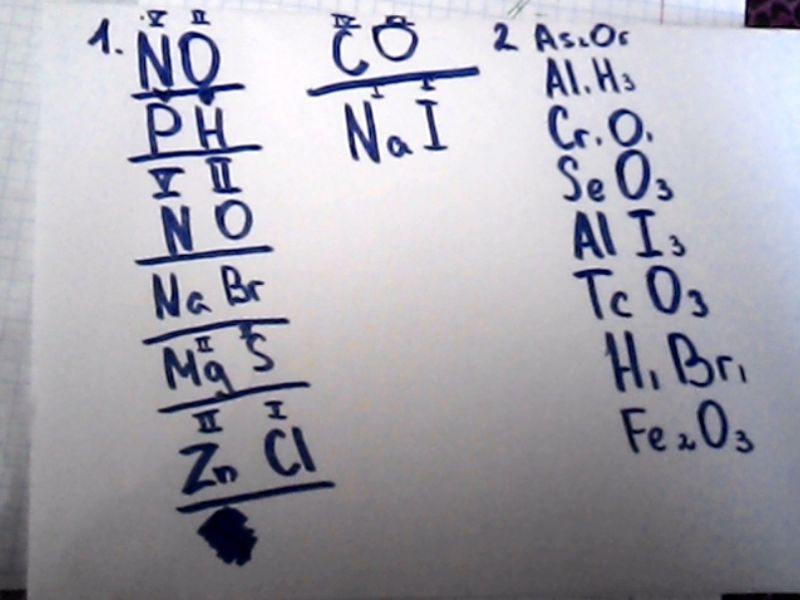 1.
V II
N O
P H
V II
N O
Na Br
II
Mg S
II I
Zn Cl
IV II
C O
I I
Na I
2 As₂O₅
Al₁H₃
Cr₁O₁
SeO₃
Al I₃
TcO₃
H₁Br₁
Fe₂O₃